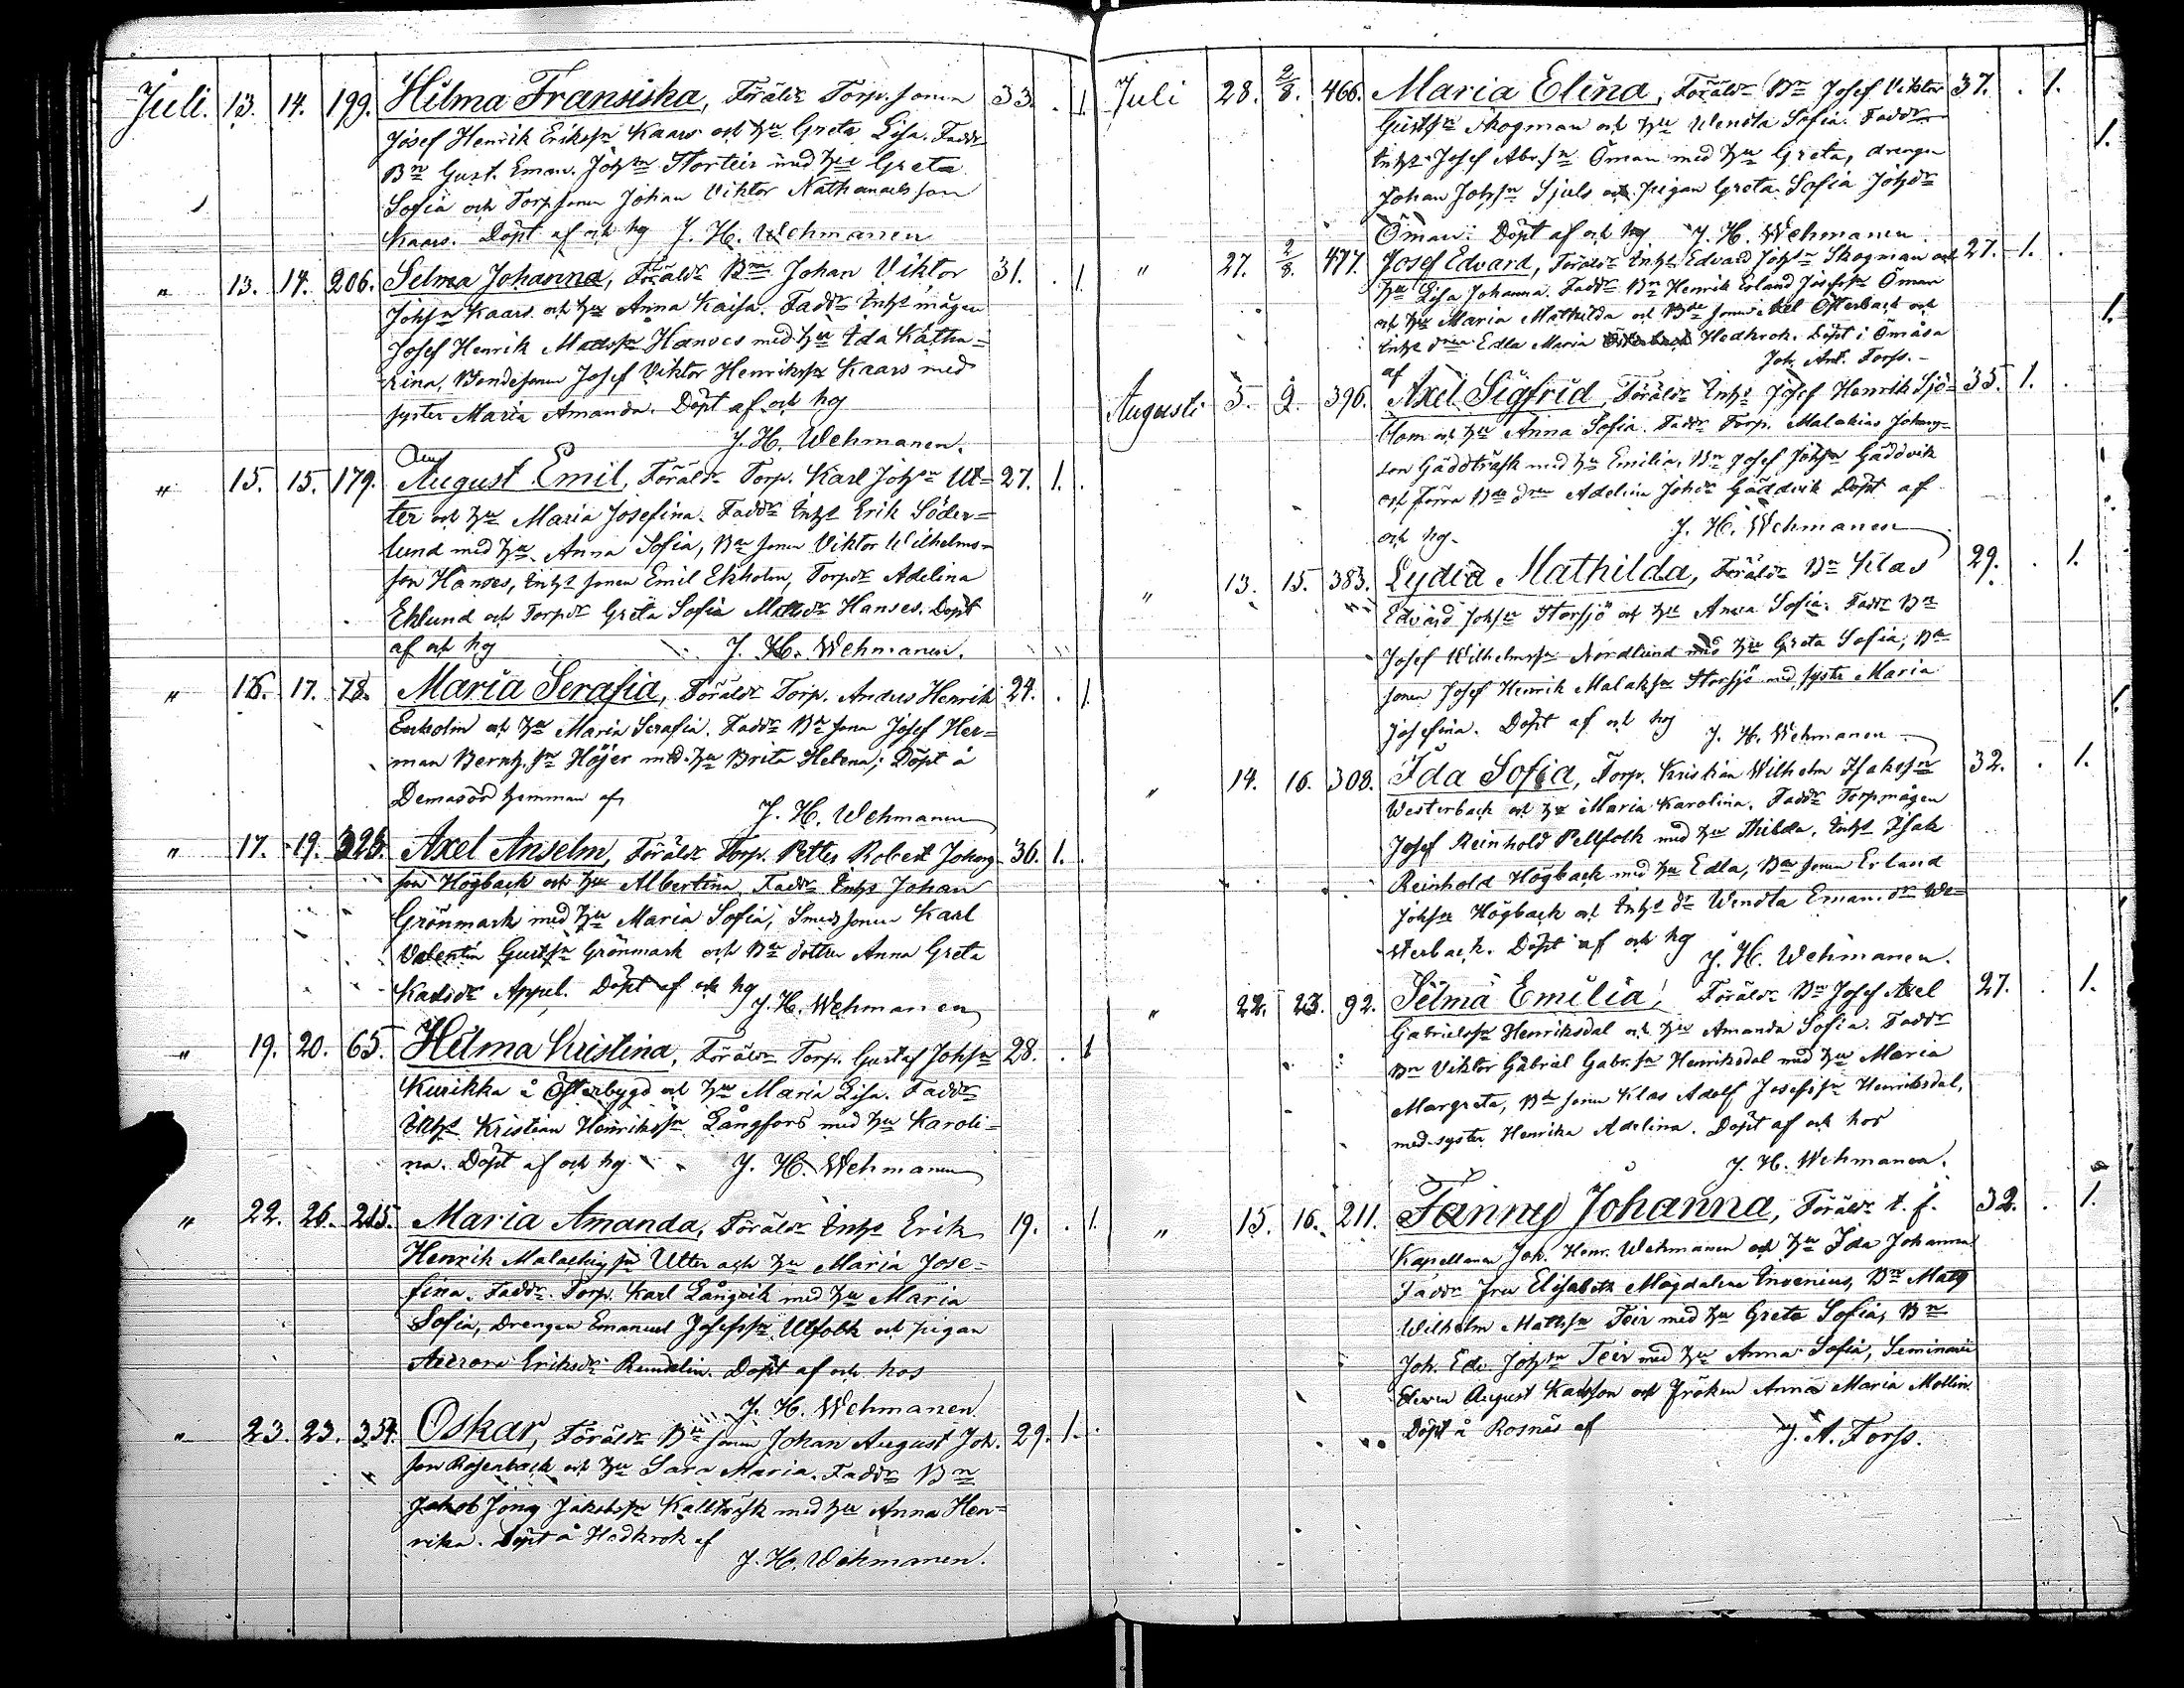 Juli. 13. 14. 199. Hilma Fransiska, Föräldr Torp. sonen 33. . 1.
Josef Henrik Erikssn Kaars och hu Greta Lisa. Faddr
Bn Gust. Eman. Johsn Storteir med hu Greta
Sofia och Torpsonen Johan Viktor Nathanaelsson
Kaars. Döpt af och hg J. H. Wehmanen
" 13. 14. 206. Selma Johanna, Föräldr Bn Johan Viktor 31. . 1.
Johsn Kaars och hu Anna Kaisa. Faddr Inhs mågen
Josef Henrik Matssn Hanses med hu Ida Katha=
rina, Bondesonen Josef Viktor Henrikssn Kaars med
syster Maria Amanda. Döpt af och hg
J. H. Wehmanen.
" 15. 15. 179. August Emil, Föräldr Torp. Karl Johsn Ut= 27. 1. .
ter och hu Maria Josefina. Faddr Inhs Erik Söder=
lund med hu Anna Sofia, Bn sonen Viktor Wilhelms=
son Hanses, Inhs sonen Emil Ekholm, Torpdr Adelina
Eklund och Torpdr Greta Sofia Mattsdr Hanses. Döpt
af och hg J. H. Wehmanen.
" 16. 17. 78. Maria Serafia, Föräldr Torp. Anders Henrik 24. . 1.
Enholm och hu Maria Serafia. Faddr Bn sonen Josef Her=
man Bernh.sn Höjer med hu Brita Helena; Döpt å
Demasöö hemman af
J. H. Wehmanen
" 17. 19. 323. Axel Anselm, Föräldr Torp. Petter Robert Johans= 36. 1. .
son Högback och hu Albertina, Faddr Inhs Johan
Grönmark med hu Maria Sofia, Smedsonen Karl
Valentin Gustsn Grönmark och Bn dottren Anna Greta
Karlsdr Appel. Döpt af och hg
J. H. Wehmanen
" 19. 20. 65. Hilma Kristina, Föräldr Torp. Gustaf Johsn 28. . 1
Kurikka å Österbygd och hu Maria Lisa. Faddr
Inhs Kristian Henrikssn Långfors med hu Karoli=
na. Döpt af och hg J. H. Wehmanen
" 22. 26. 215. Maria Amanda, Föräldr Inhs Erik 19. . 1.
Henrik Malachissn Utter och hu Maria Jose=
fina. Faddr. Torp. Karl Långvik med hu Maria
Sofia, Drengen Emanuel Josefssn Ulfolk och pigan
Aurora Eriksdr Rundelin. Döpt af och hos
J. H. Wehmanen.
" 23. 23. 354. Oskar, Föräldr Bn sonen Johan August Joh. 29. 1. .
son Rosenback och hu Sara Maria. Faddr Bn
Jakob Jöns Jakobssn Kallträsk med hu Anna Hen=
rika. Döpt å Hedkrok af
J. H. Wehmanen.
Juli 28. 2/8. 466. Maria Elina, Föräldr Bn Josef Viktor 37. . 1.
Gustsn Skogman och hu Wendla Sofia. Faddr
Inhs Josef Abr.sn Öman med hu Greta, drengen
Johan Johsn Sjuls och pigan Greta Sofia Johsdr
Öman: Döpt af och hg J. H. Wehmanen.
" 27. 2/8. 477. Josef Edvard, Föräldr Inhs Edvard Johsn Skogman och 27. 1. .
hu Lisa Johanna. Faddr Bn Henrik Erland Josefssn Öman
och hu Maria Mathilda och Bde sonen Axel Österback och
Inhs dren Edla Maria Hedkrok. Döpt i Ömåsa
af Joh. Ant. Forss.
Augusti 5. 9. 396. Axel Sigfrid, Föräldr Inhs Josef Henrik Sjö= 35. 1. .
blom och hu Anna Sofia. Faddr Torp. Malakias Johans=
son Gäddträsk med hu Emilia, Bn Josef Johsn Gäddvik
och förra Bde dren Adelina Johdr Gäddvik Döpt af
och hg. J. H. Wehmanen
" 13. 15. 383. Lydia Mathilda, Föräldr Bn Klas 29. . 1.
Edvard Johsn Storsjö och hu Anna Sofia. Faddr Bn
Josef Wilhelmssn Nordlund med hu Greta Sofia; Bn
sonen Josef Henrik Malaksn Storsjö med syster Maria
Josefina. Döpt af och hg J. H. Wehmanen
" 14. 16. 308. Ida Sofia, Torp. Kristian Wilhelm Isakssn 32. . 1.
Westerback och hu Maria Karolina. Faddr Torpmågen
Josef Reinhold Pellfolk med hu Hilda, Inhs Isak
Reinhold Högback med hu Edla, Bn sonen Erland
Johsn Högback och Inhs dr Wendla Eman.dr We=
sterback. Döpt af och hg
J. H. Wehmanen.
" 22. 23. 92. Selma Emilia, Föräldr Bn Josef Axel 27. . 1.
Gabrielssn Henriksdal och hu Amanda Sofia. Faddr
Bn Viktor Gabriel Gabr.sn Henriksdal med hu Maria
Margreta, Bn sonen Klas Adolf Josefssn Henriksdal,
med syster Henrika Adelina. Döpt af och hos
J. H. Wehmanen.
" 15. 16. 211. Fanny Johanna, Föräldr t. f. 32. . 1.
Kapellanen Joh. Henr. Wehmanen och hu Ida Johanna
Faddr fru Elisabeth Magdalena Invenius, Bn Mats
Wilhelm Mattssn Teir med hu Greta Sofia, Bn
Joh. Edv. Johsn Teir med hu Anna Sofia, Seminarii
Eleven August Karlsson och Fröken Anna Maria Mollin.
Döpt å Rosnäs af J. A. Forss.